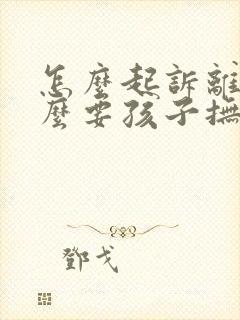 怎麼起訴離
麼要孩子撫
鄧戈